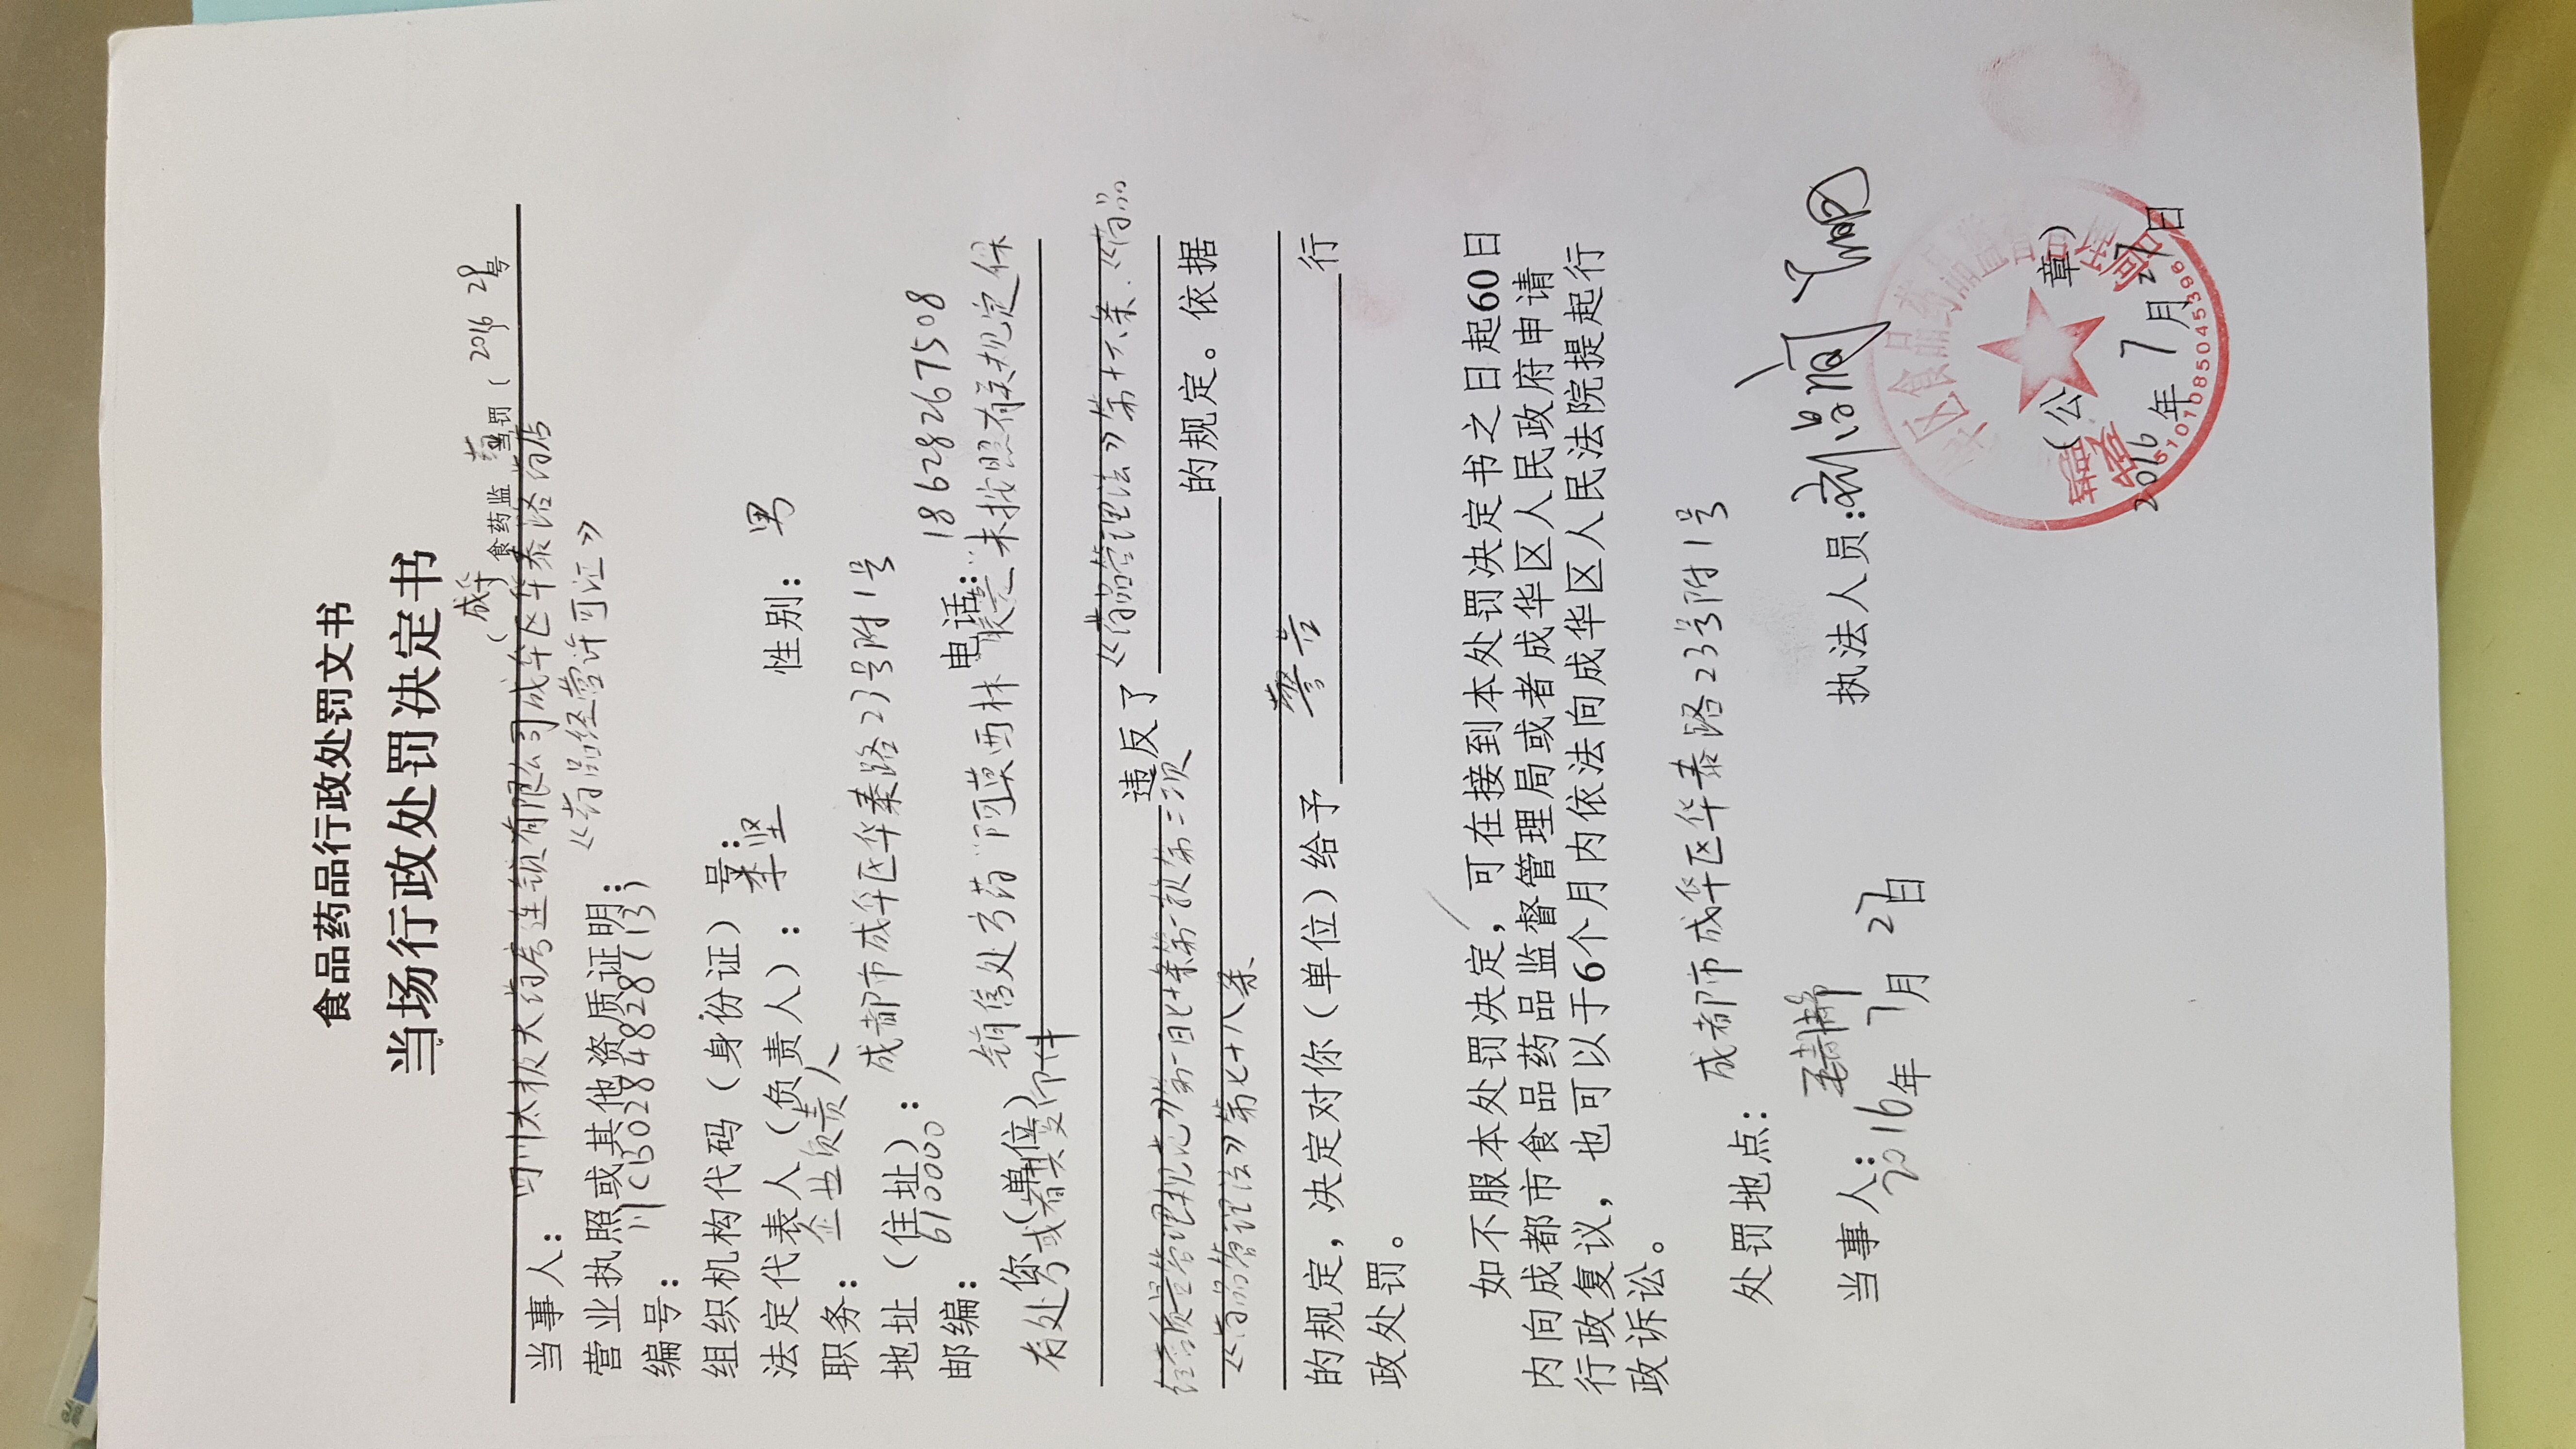 食品药品行政处罚文书
当场行政处罚决定书
(成华)食药监 药 当罚〔2016〕29号
当事人：四川太极大药房连锁有限公司成华区华泰路药店
营业执照或其他资质证明：《药品经营许可证》
编号：川CB0284828(13)
组织机构代码（身份证）号：
法定代表人（负责人）：坚 性别：男
职务：企业负责人
地址（住址）：成都市成华区华泰路23号附1号
邮编：610000 电话：18628267508
你（单位）销售处方药"阿莫西林胶囊"未按照有关规定保
存处方或者其复印件
违反了《药品管理法》第十六条.《药品
经营质量管理规范》第一百七十条第一款第二项的规定。依据
《药品管理法》第七十八条
的规定，决定对你（单位）给予 警告 行
政处罚。
如不服本处罚决定，可在接到本处罚决定书之日起60日
内向成都市食品药品监督管理局或者成华区人民政府申请
行政复议，也可以于6个月内依法向成华区人民法院提起行
政诉讼。
处罚地点：成都市成华区华泰路23号附1号
当事人： 执法人员：
（公 章）
2016年7月27日 2016年7月27日
5101085045396